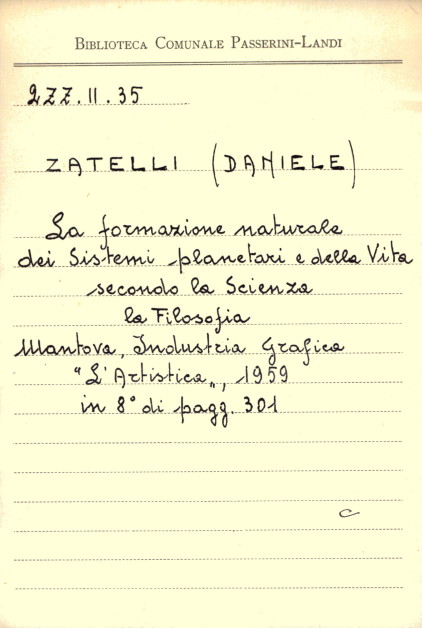 BIBLIOTECA COMUNALE PASSERINI-LANDI
2ZZ.II.35
ZATELLI (DANIELE)
La formazione naturale
dei Sistemi planetari e della Vita
secondo la Scienza
la Filosofia
Mantova, Industria Grafica
"L'Artistica", 1959
in 8° di pagg. 301
c